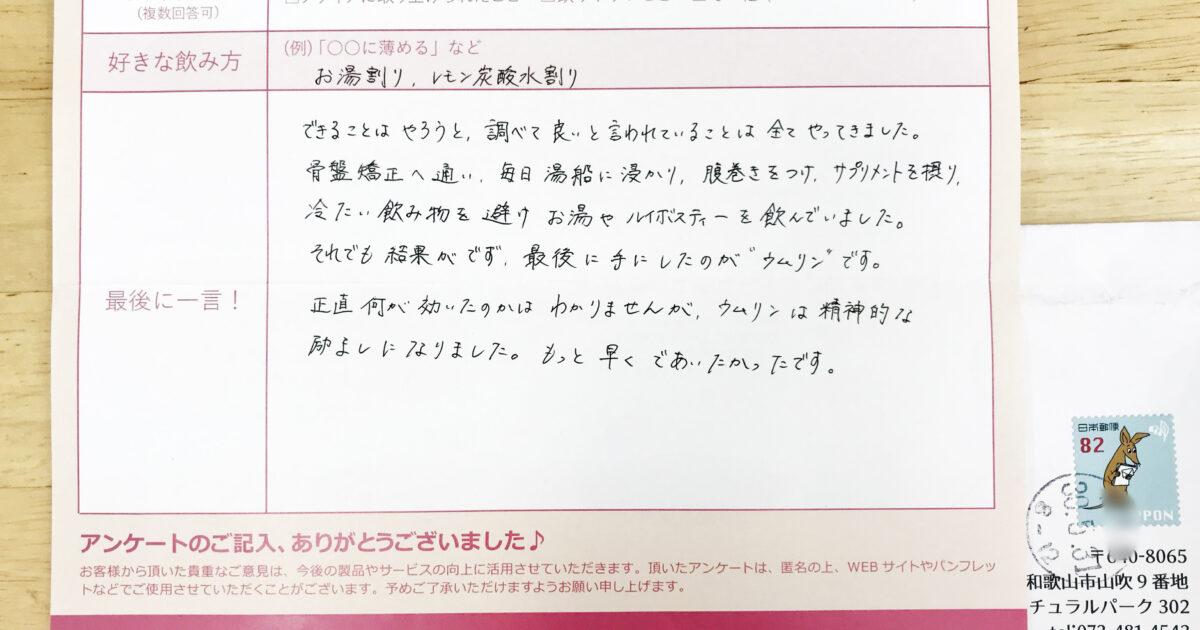 (複数回答可)
好きな飲み方
(例)「〇〇に薄める」など
お湯割り, レモン炭酸水割り
できることは やろうと, 調べて良いと言われていることは 全て やってきました。
骨盤矯正へ通い, 毎日 湯船に 浸かり, 腹巻きをつけ, サプリメントを摂り,
冷たい飲み物を 避け お湯や ルイボスティーを 飲んでいました。
それでも 結果がでず, 最後に 手にしたのが "ウムリン" です。
最後に一言！
正直 何が 効いたのかは わかりませんが, ウムリンは 精神的な
励ましになりました。 もっと 早く であいたかったです。
日本郵便
82
NIPPON
アンケートのご記入、ありがとうございました♪
お客様から頂いた貴重なご意見は、今後の製品やサービスの向上に活用させていただきます。頂いたアンケートは、匿名の上、WEBサイトやパンフレッ
トなどでご使用させていただくことがございます。予めご了承いただけますようお願い申し上げます。
〒640-8065
和歌山市山吹9番地
チュラルパーク302
tel:073-481-4542